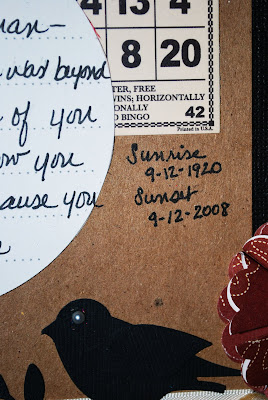 man-
was beyond
of you
you
cause you
4 13 4
8 20
TER, FREE
WINS; HORIZONTALLY
ONALLY
D BINGO 42
Printed in U.S.A.
Sunrise
9-12-1920
Sunset
9-12-2008